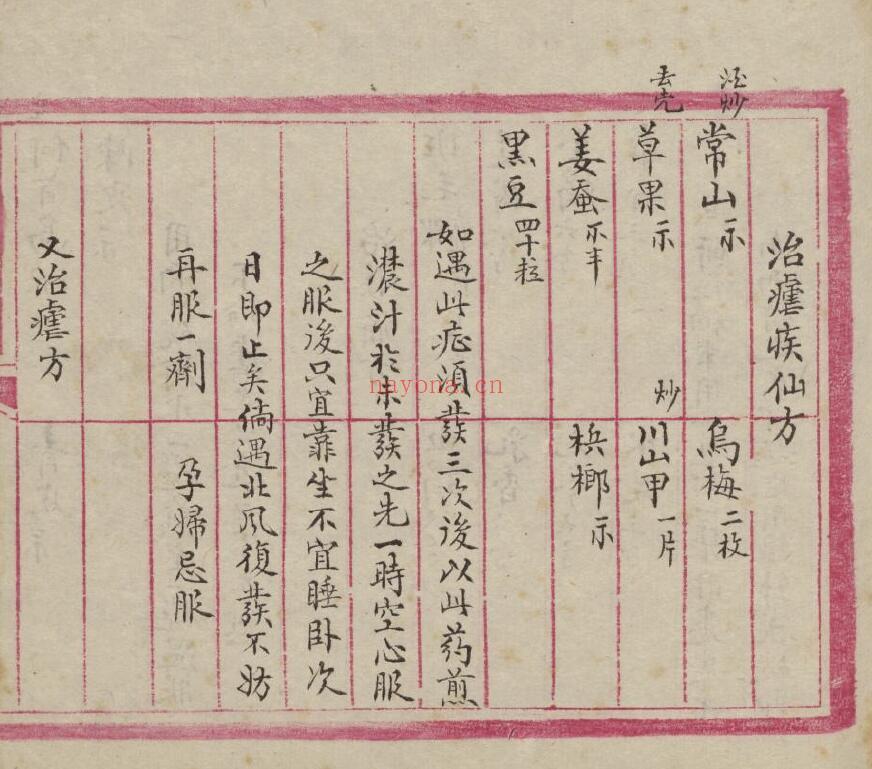 治瘧疾仙方
酒炒
常山 烏梅二枚
去壳
草果 炒川山甲一片
姜蚕 梹榔
黑豆四十粒
如遇此症須發三次後以此药煎
濃汁於未發之先一時空心服
之服後只宜靠坐不宜睡卧次
日即止矣倘遇北风復發不妨
再服一劑 孕婦忌服
又治瘧方
nayona.cn